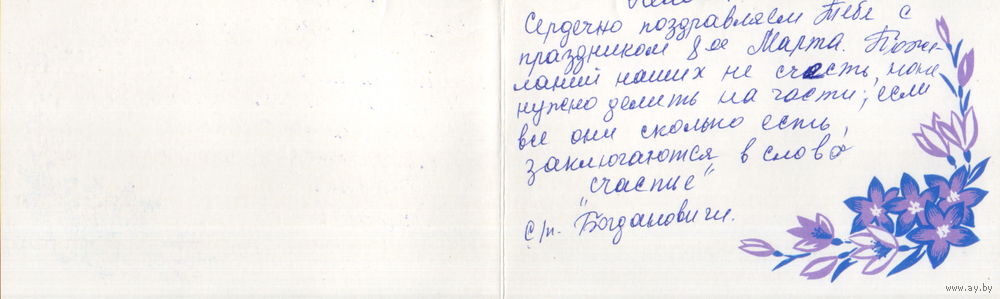 Сердечно поздравляем Тебя с
праздником 8ое Марта. Поже-
ланий наших не счесть,
нужно делить на части; если
все они сколько есть,
заключаются в слово
"счастье"
с/п. Богдановичи.
www.ay.by